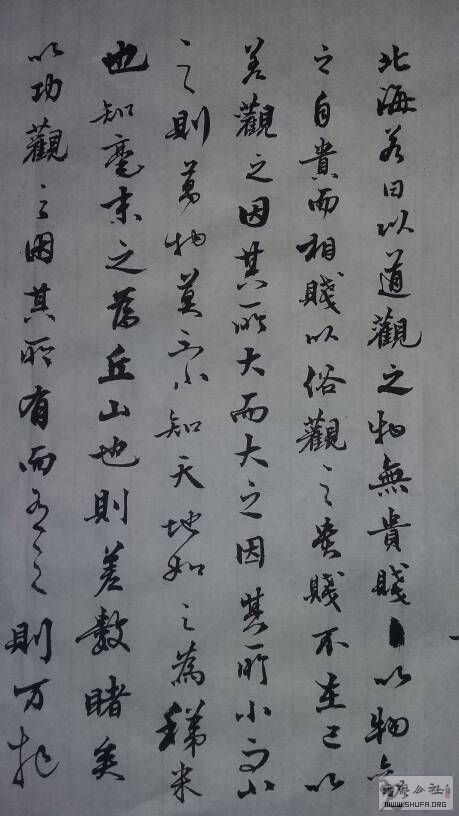 北海若曰以道觀之物無貴賤以物
之自貴而相賤以俗觀之貴賤不在己以
差觀之因其所大而大之因其所小而小
之則萬物莫不小知天地如之為稊米
也知毫末之為丘山也則差數睹矣
以功觀之因其所有而有之則万物
WWW.SHUFA.ORG